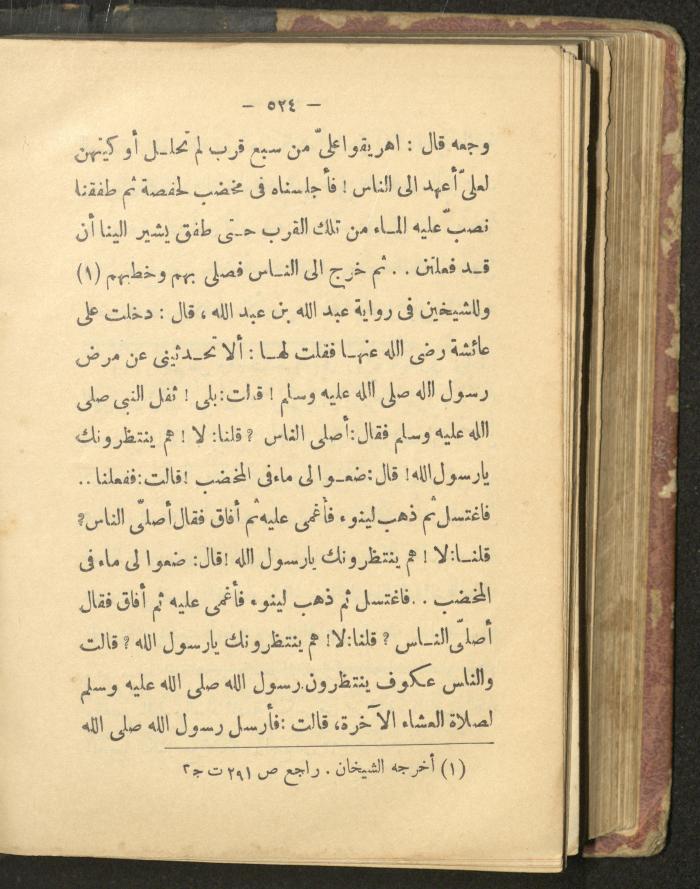 — ٥٢٤ —
وجعه قال : اهريقوا علىّ من سبع قرب لم تحلل أوكيتهن
لعلىّ أعهد الى الناس ! فأجلسناه فى مخضب لحفصة ثم طفقنا
نصبّ عليه الماء من تلك القرب حتى طفق يشير الينا أن
قد فعلتن . . ثم خرج الى الناس فصلى بهم وخطبهم (١)
وللشيخين فى رواية عبد الله بن عبد الله ، قال : دخلت على
عائشة رضى الله عنها فقلت لها : ألا تحدثينى عن مرض
رسول الله صلى الله عليه وسلم ! قالت : بلى ! ثقل النبى صلى
الله عليه وسلم فقال : أصلى الناس ؟ قلنا : لا ! هم ينتظرونك
يارسول الله ! قال : ضعوا لى ماء فى المخضب ! قالت : ففعلنا . .
فاغتسل ثم ذهب لينوء فأغمى عليه ثم أفاق فقال أصلّى الناس ؟
قلنا : لا ! هم ينتظرونك يارسول الله ! قال : ضعوا لى ماء فى
المخضب . . فاغتسل ثم ذهب لينوء فأغمى عليه ثم أفاق فقال
أصلّى الناس ؟ قلنا : لا ! هم ينتظرونك يارسول الله ؟ قالت
والناس عكوف ينتظرون رسول الله صلى الله عليه وسلم
لصلاة العشاء الآخرة ، قالت : فأرسل رسول الله صلى الله
(١) أخرجه الشيخان . راجع ص ٢٩١ ت ج٢